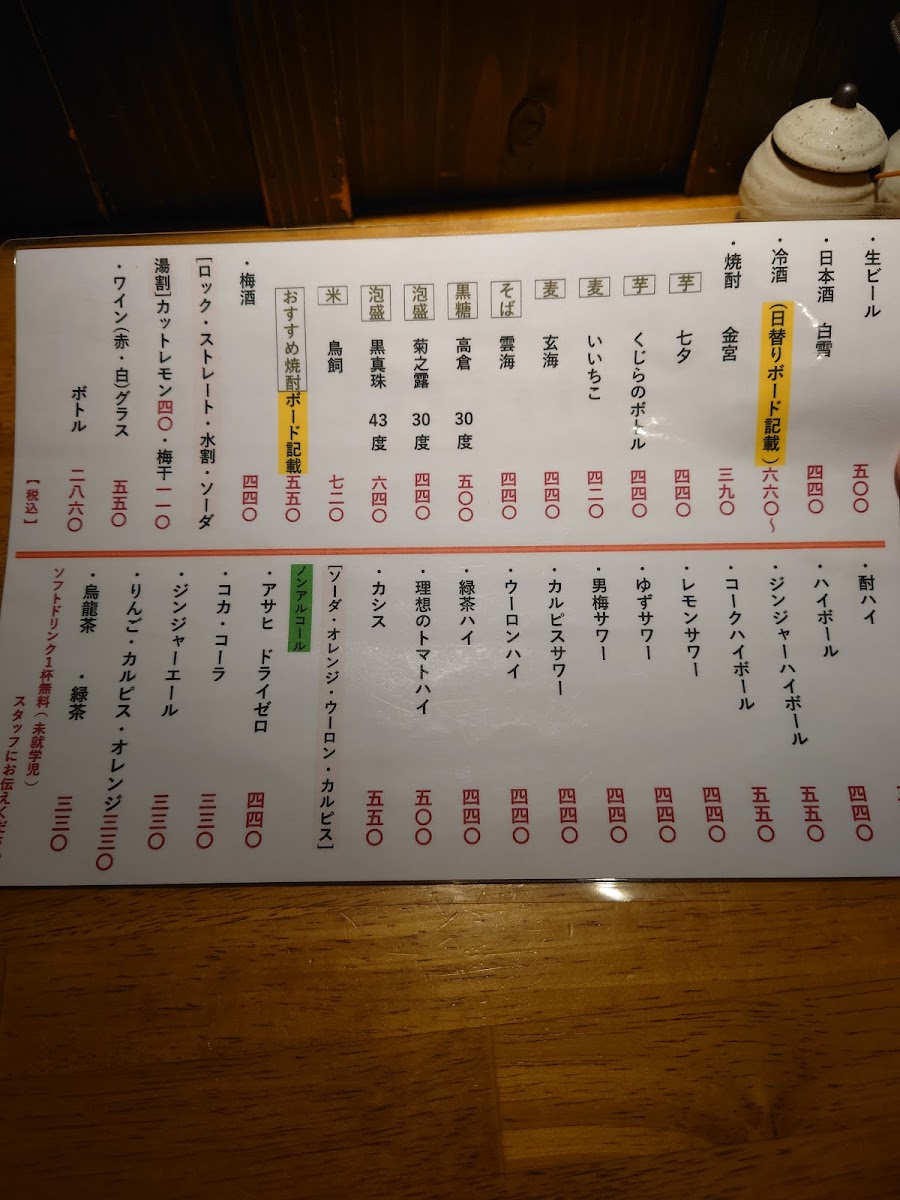 ・生ビール 五〇〇
・日本酒 白雪 四四〇
・冷酒 (日替りボード記載) 六六〇〜
・焼酎 金宮 三九〇
芋 七夕 四四〇
芋 くじらのボトル 四四〇
麦 いいちこ 四二〇
麦 玄海 四四〇
そば 雲海 四四〇
黒糖 高倉 30度 五〇〇
泡盛 菊之露 30度 四四〇
泡盛 黒真珠 43度 六四〇
米 鳥飼 七二〇
おすすめ焼酎ボード記載 五五〇
・梅酒 四四〇
[ロック・ストレート・水割・ソーダ
湯割]カットレモン四〇・梅干一一〇
・ワイン(赤・白)グラス 五五〇
ボトル 二八六〇
【税込】
・酎ハイ 四四〇
・ハイボール 五五〇
・ジンジャーハイボール 五五〇
・コークハイボール 四四〇
・レモンサワー 四四〇
・ゆずサワー 四四〇
・男梅サワー 四四〇
・カルピスサワー 四四〇
・ウーロンハイ 四四〇
・緑茶ハイ 四四〇
・理想のトマトハイ 五〇〇
・カシス 五五〇
[ソーダ・オレンジ・ウーロン・カルピス]
ノンアルコール
・アサヒ ドライゼロ 四四〇
・コカ・コーラ 三三〇
・ジンジャーエール 三三〇
・りんご・カルピス・オレンジ 三三〇
・烏龍茶 ・緑茶 三三〇
ソフトドリンク1杯無料(未就学児)
スタッフにお伝えくだ